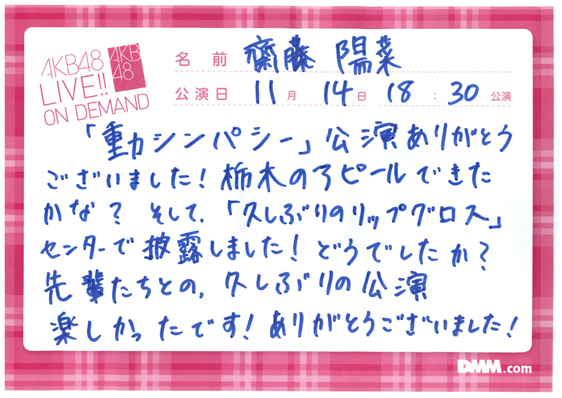 AKB48
LIVE!!
ON DEMAND
AKB
48
名前 齋藤 陽菜
公演日 11月 14日 18:30公演
「重力シンパシー」公演ありがとう
ございました！栃木のアピールできた
かな？ そして、「久しぶりのリップグロス」
センターで披露しました！どうでしたか？
先輩たちとの、久しぶりの公演
楽しかったです！ありがとうございました！
DMM.com